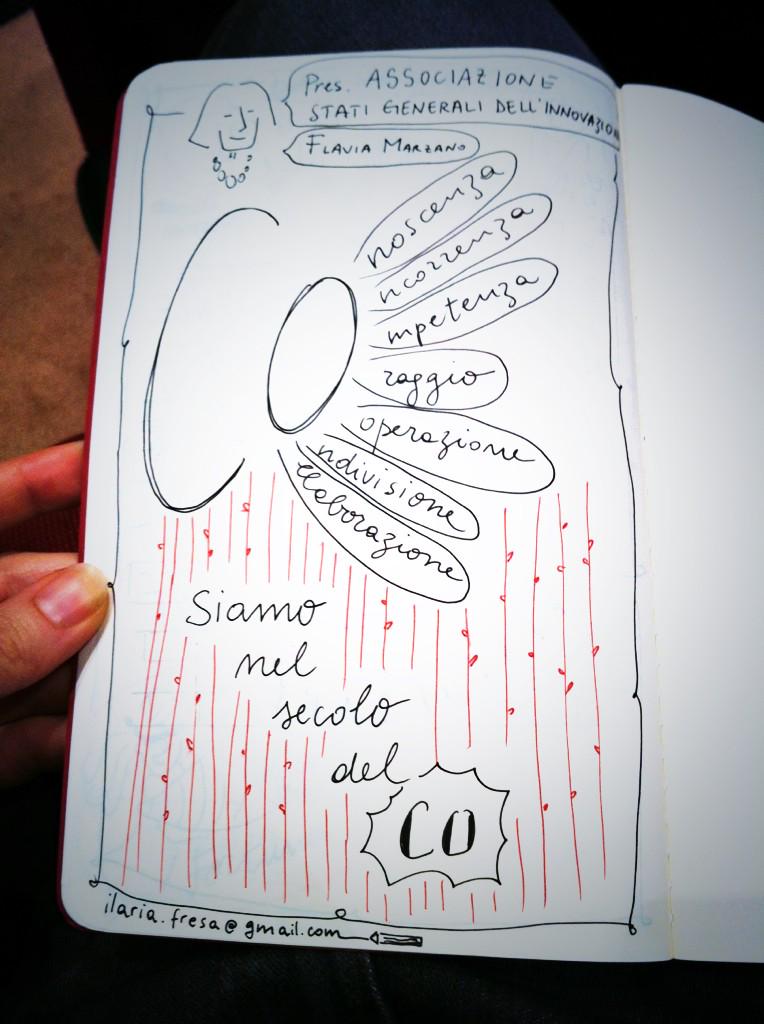 Pres. ASSOCIAZIONE
STATI GENERALI DELL'INNOVAZION
FLAVIA MARZANO
CO
noscenza
ncorrenza
mpetenza
raggio
operazione
ndivisione
elaborazione
Siamo
nel
secolo
del
CO
ilaria.fresa@gmail.com